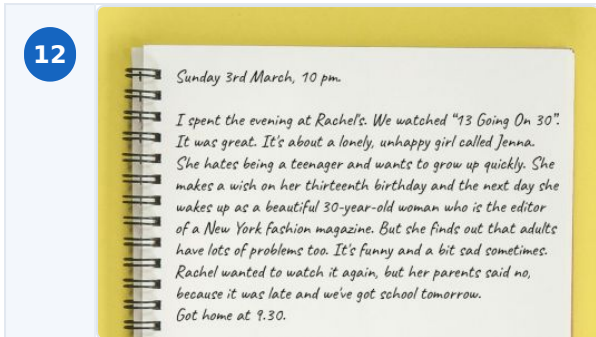 12
Sunday 3rd March, 10 pm.
I spent the evening at Rachel's. We watched "13 Going On 30".
It was great. It's about a lonely, unhappy girl called Jenna.
She hates being a teenager and wants to grow up quickly. She
makes a wish on her thirteenth birthday and the next day she
wakes up as a beautiful 30-year-old woman who is the editor
of a New York fashion magazine. But she finds out that adults
have lots of problems too. It's funny and a bit sad sometimes.
Rachel wanted to watch it again, but her parents said no,
because it was late and we've got school tomorrow.
Got home at 9.30.